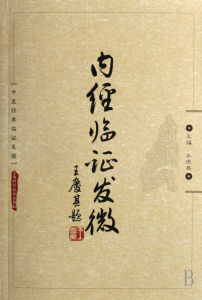 内经临证发微
王庆其题
主编 王庆其
中医经典临证发微
B